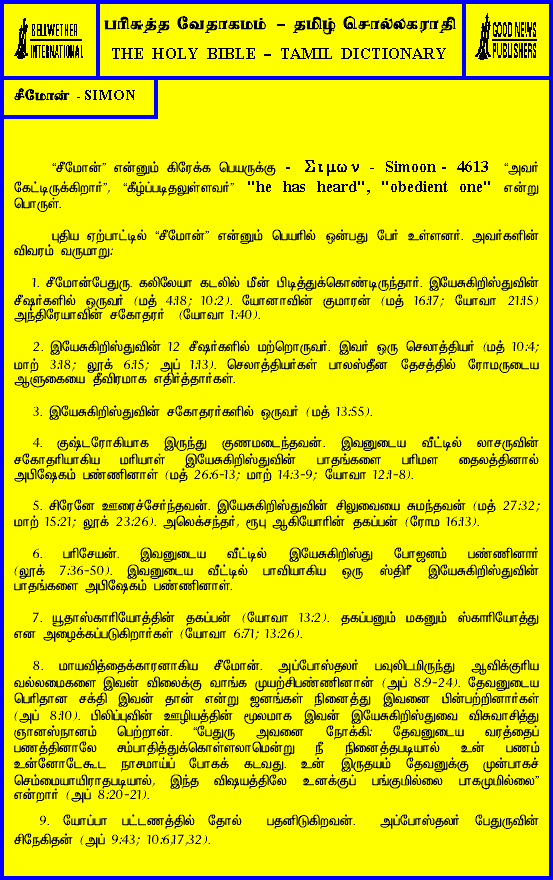 BELLWETHER
INTERNATIONAL
பரிசுத்த வேதாகமம் – தமிழ் சொல்லகராதி
THE HOLY BIBLE – TAMIL DICTIONARY
GOOD NEWS
PUBLISHERS
சீமோன் - SIMON
“சீமோன்” என்னும் கிரேக்க பெயருக்கு - Σιμων - Simoon - 4613 “அவர்
கேட்டிருக்கிறார்”, “கீழ்ப்படிதலுள்ளவர்” "he has heard", "obedient one" என்று
பொருள்.
புதிய ஏற்பாட்டில் “சீமோன்” என்னும் பெயரில் ஒன்பது பேர் உள்ளனர். அவர்களின்
விவரம் வருமாறு:
1. சீமோன்பேதுரு. கலிலேயா கடலில் மீன் பிடித்துக்கொண்டிருந்தார். இயேசுகிறிஸ்துவின்
சீஷர்களில் ஒருவர் (மத் 4:18; 10:2). யோனாவின் குமாரன் (மத் 16:17; யோவா 21:15)
அந்திரேயாவின் சகோதரர் (யோவா 1:40).
2. இயேசுகிறிஸ்துவின் 12 சீஷர்களில் மற்றொருவர். இவர் ஒரு செலாத்தியர் (மத் 10:4;
மாற் 3:18; லூக் 6:15; அப் 1:13). செலாத்தியர்கள் பாலஸ்தீன தேசத்தில் ரோமருடைய
ஆளுகையை தீவிரமாக எதிர்த்தார்கள்.
3. இயேசுகிறிஸ்துவின் சகோதரர்களில் ஒருவர் (மத் 13:55).
4. குஷ்டரோகியாக இருந்து குணமடைந்தவன். இவனுடைய வீட்டில் லாசருவின்
சகோதரியாகிய மரியாள் இயேசுகிறிஸ்துவின் பாதங்களை பரிமள தைலத்தினால்
அபிஷேகம் பண்ணினாள் (மத் 26:6-13; மாற் 14:3-9; யோவா 12:1-8).
5. சிரேனே ஊரைச்சேர்ந்தவன். இயேசுகிறிஸ்துவின் சிலுவையை சுமந்தவன் (மத் 27:32;
மாற் 15:21; லூக் 23:26). அலெக்சந்தர், ரூபு ஆகியோரின் தகப்பன் (ரோம 16:13).
6. பரிசேயன். இவனுடைய வீட்டில் இயேசுகிறிஸ்து போஜனம் பண்ணினார்
(லூக் 7:36-50). இவனுடைய வீட்டில் பாவியாகிய ஒரு ஸ்திரீ இயேசுகிறிஸ்துவின்
பாதங்களை அபிஷேகம் பண்ணினாள்.
7. யூதாஸ்காரியோத்தின் தகப்பன் (யோவா 13:2). தகப்பனும் மகனும் ஸ்காரியோத்து
என அழைக்கப்படுகிறார்கள் (யோவா 6:71; 13:26).
8. மாயவித்தைக்காரனாகிய சீமோன். அப்போஸ்தலர் பவுலிடமிருந்து ஆவிக்குரிய
வல்லமைகளை இவன் விலைக்கு வாங்க முயற்சிபண்ணினான் (அப் 8:9-24). தேவனுடைய
பெரிதான சக்தி இவன் தான் என்று ஜனங்கள் நினைத்து இவனை பின்பற்றினார்கள்
(அப் 8:10). பிலிப்புவின் ஊழியத்தின் மூலமாக இவன் இயேசுகிறிஸ்துவை விசுவாசித்து
ஞானஸ்நானம் பெற்றான். “பேதுரு அவனை நோக்கி: தேவனுடைய வரத்தைப்
பணத்தினாலே சம்பாதித்துக்கொள்ளலாமென்று நீ நினைத்தபடியால் உன் பணம்
உன்னோடேகூட நாசமாய்ப் போகக் கடவது. உன் இருதயம் தேவனுக்கு முன்பாகச்
செம்மையாயிராதபடியால், இந்த விஷயத்திலே உனக்குப் பங்குமில்லை பாகமுமில்லை”
என்றார் (அப் 8:20-21).
9. யோப்பா பட்டணத்தில் தோல் பதனிடுகிறவன். அப்போஸ்தலர் பேதுருவின்
சிநேகிதன் (அப் 9:43; 10:6,17,32).